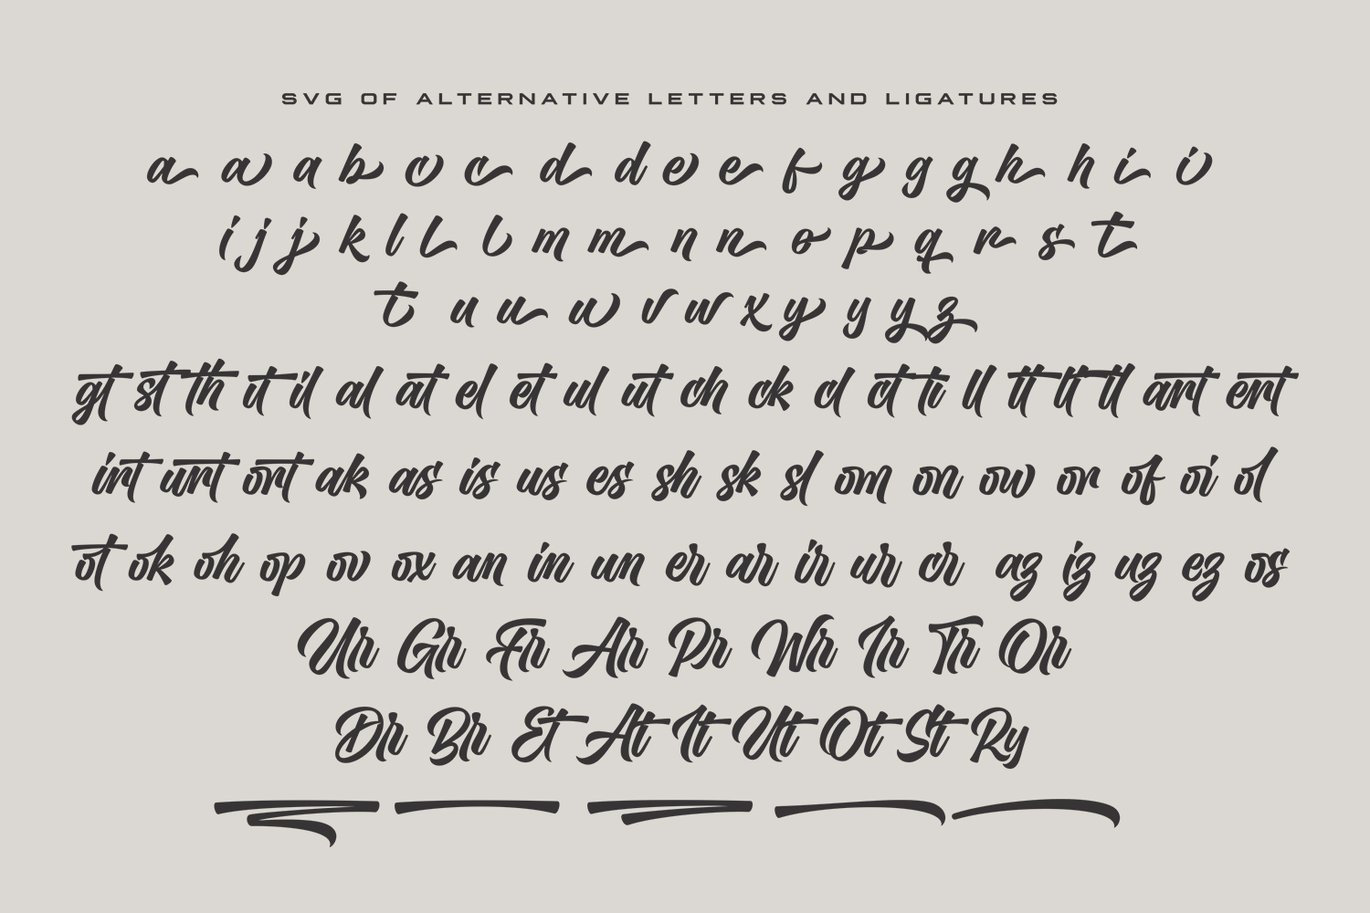 SVG OF ALTERNATIVE LETTERS AND LIGATURES
a a a b c c d d e e f g g g h h i i
i j j k l l l m m n n o p q r s t
t u u u v w x y y y z
gt st th it il al at el et ul ut ch ck cl ct ti ll tt lt tl art ert
irt urt ort ak as is us es sh sk sl om on ow or of oi ol
ot ok oh op ov ox an in un er ar ir ur cr az iz uz ez os
Ur Gr Fr Ar Pr Wr Ir Tr Or
Dr Br Et At It Ut Ot St Ry